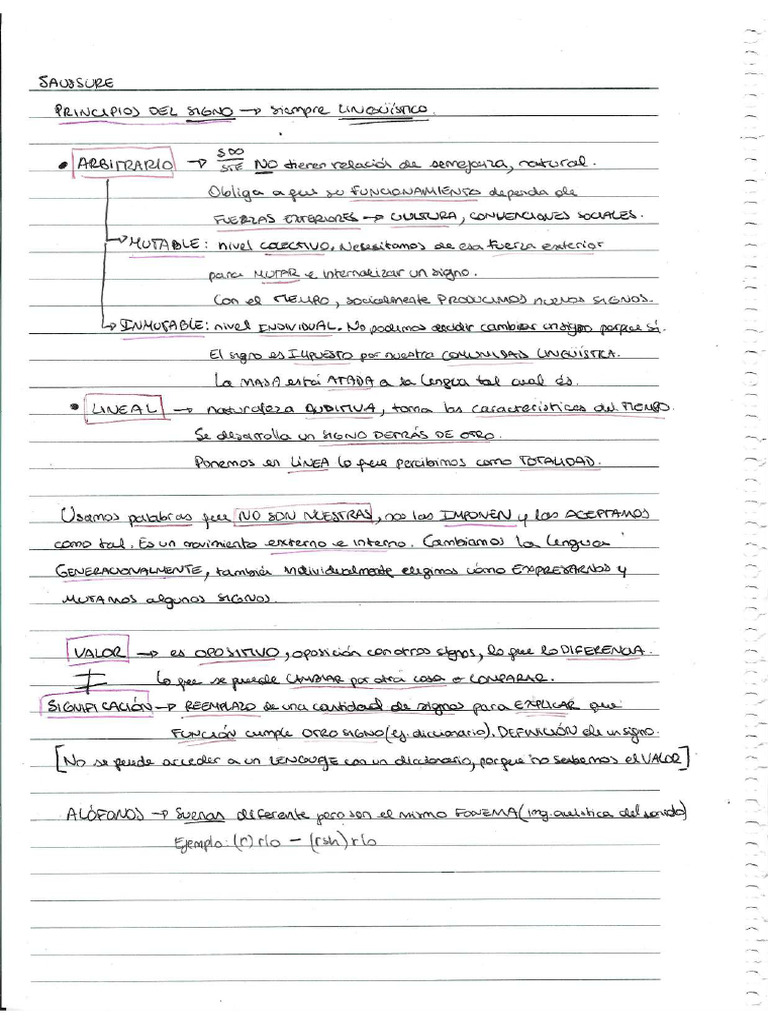 SAUSSURE
PRINCIPIOS DEL SIGNO → siempre LINGÜÍSTICO.
• ARBITRARIO → SDO/STE NO tienen relación de semejanza, natural.
Obliga a que su FUNCIONAMIENTO dependa de
FUERZAS EXTERIORES → CULTURA, CONVENCIONES SOCIALES.
→ MUTABLE: nivel COLECTIVO. Necesitamos de esa fuerza exterior
para MUTAR e internalizar un signo.
Con el TIEMPO, socialmente PRODUCIMOS NUEVOS SIGNOS.
→ INMUTABLE: nivel INDIVIDUAL. No podemos decidir cambiar un signo porque sí.
El signo es IMPUESTO por nuestra COMUNIDAD LINGÜÍSTICA.
La MASA está ATADA a la lengua tal cual és.
• LINEAL → naturaleza AUDITIVA, toma las características del TIEMPO.
Se desarrolla un SIGNO DETRÁS DE OTRO.
Ponemos en LÍNEA lo que percibimos como TOTALIDAD.
Usamos palabras que NO SON NUESTRAS, nos las IMPONEN y las ACEPTAMOS
como tal. Es un movimiento externo e interno. Cambiamos la lengua
GENERACIONALMENTE, también individualmente elegimos cómo EXPRESARNOS y
MUTAMOS algunos SIGNOS.
VALOR → es OPOSITIVO, oposición con otros signos, lo que lo DIFERENCIA.
≠ lo que se puede CAMBIAR por otra cosa o COMPARAR.
SIGNIFICACIÓN → REEMPLAZO de una cantidad de signos para EXPLICAR que
FUNCIÓN cumple OTRO SIGNO (ej. diccionario). DEFINICIÓN de un signo.
[No se puede acceder a un LENGUAJE con un diccionario, porque no sabemos el VALOR]
ALÓFONOS → Suenas diferente pero son el mismo FONEMA (img. acústica del sonido)
Ejemplo: (r) río – (rsh) río